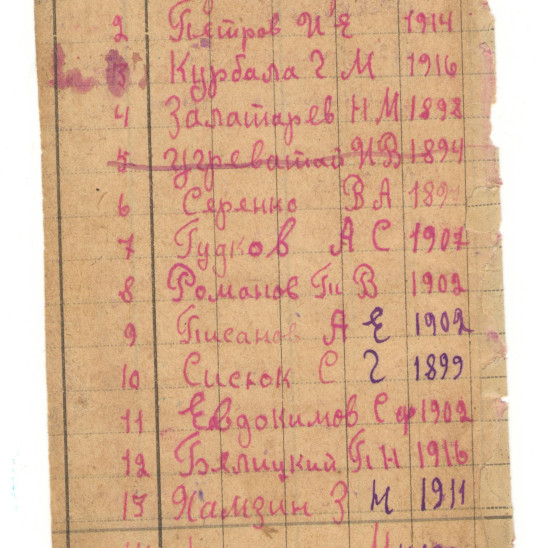 2 Пятров И Е 1914
3 Курбала Г М 1916
4 Залатарев Н М 1898
5 Угреватай И В 1894
6 Серянко В А
7 Гудков А С 1907
8 Романов П В 1902
9 Писанов А Е 1902
10 Сисюк С Г 1899
11 Евдокимов С ф 1902
12 Бялицкий П Н 1916
13 Хамзин З Н 1911